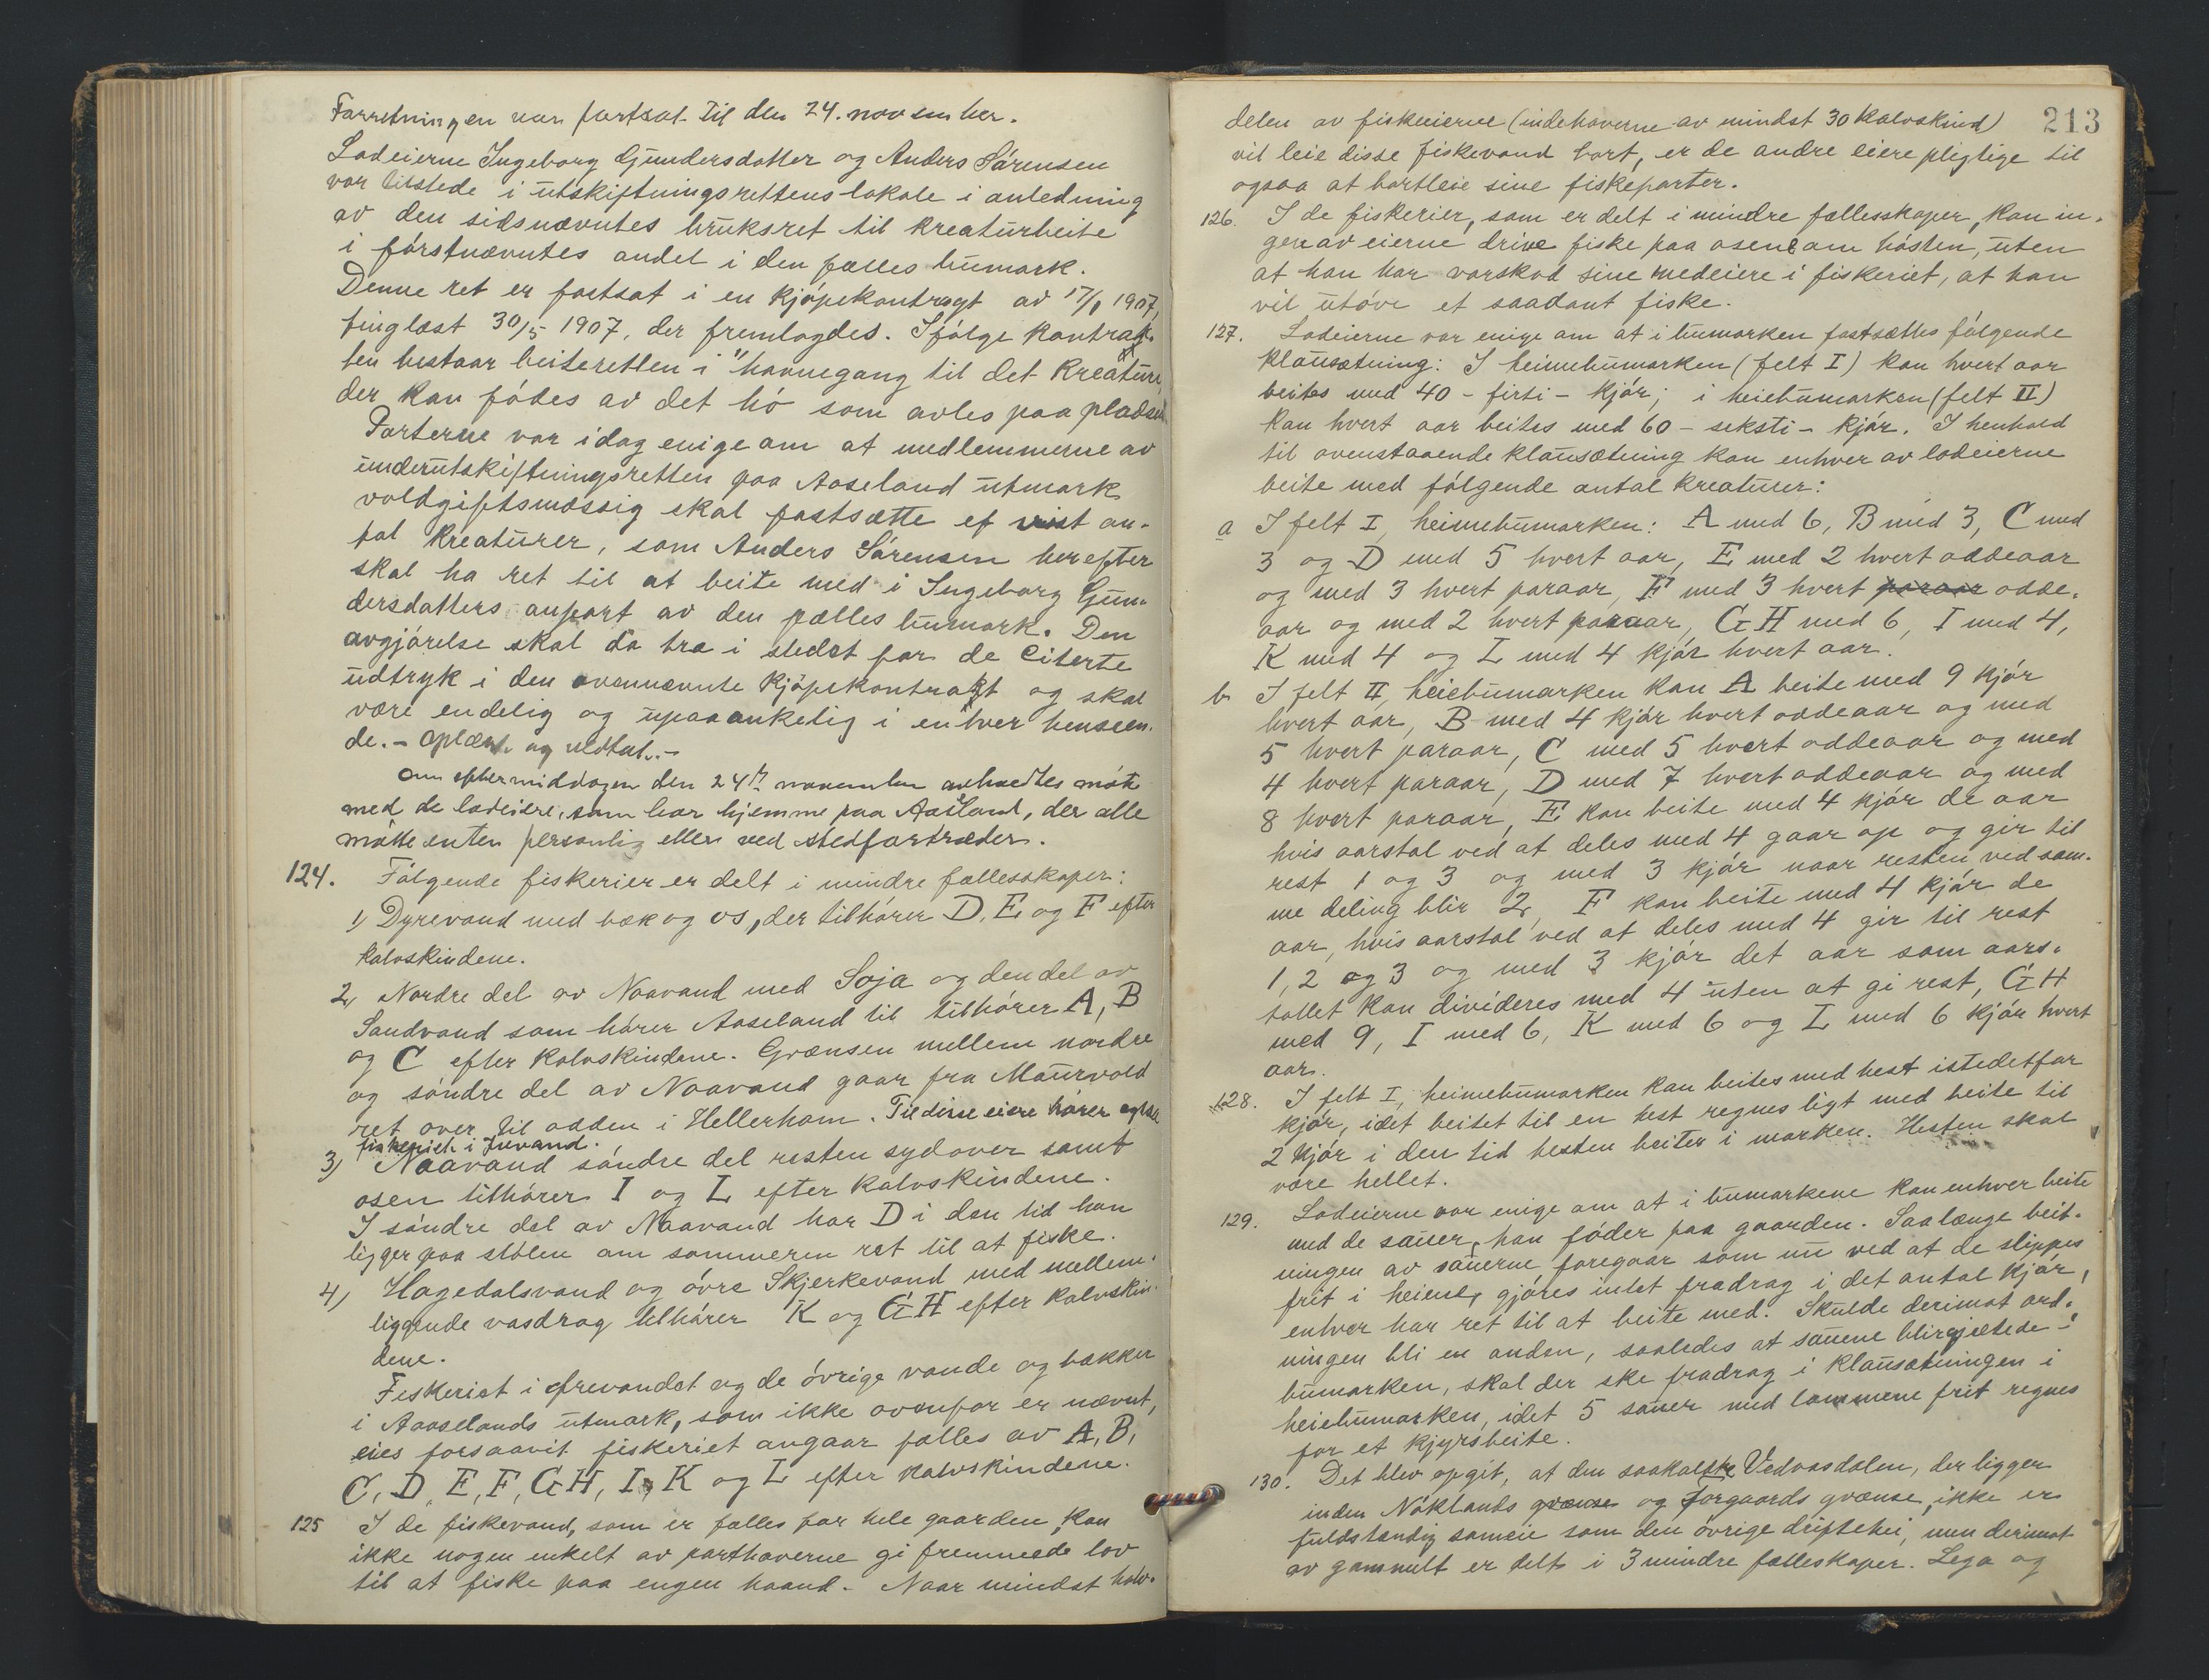 Forretningen var fortsat til den 24. november.
Lodeierne Ingeborg Gundersdatter og Anders Sørensen
var tilstede i utskiftningsrettens lokale i anledning
av den sidsnævntes bruksret til kreaturbeite
i førstnævntes andel i den fælles bumark.
Denne ret er fastsat i en kjøpekontragt av 17/1 1907,
tinglæst 30/5 1907, der fremlagdes. Ifølge kontrak-
ten bestaar beiteretten i "havnegang til det kreature
der kan fødes av det hø som avles paa pladsen
Parterne var idag enige om at medlemmerne av
underutskiftningsretten paa Aaseland utmark
voldgiftsmæssig skal fastsætte et vist an-
tal kreaturer, som Anders Sørensen herefter
skal ha ret til at beite med i Ingeborg Gun-
dersdatters anpart av den fælles bumark. Den
avgjørelse skal da tra i stedet for de citerte
udtryk i den ovennævnte kjøpekontrakt og skal
være endelig og upaaankelig i enhver henseen-
de. - Oplæst og vedtat. -
Om eftermiddagen den 24de november avholdtes møte
med de lodeiere, som bor hjemme paa Aaseland, der alle
møtte enten personlig eller ved stedfortræder.
124. Følgende fiskerier er delt i mindre fællesskaper:
1) Dyrevand med bæk og os, der tilhører D, E og F efter
kalvskindene.
2) Nordre del av Naavand med Soja og den del av
Sandvand som hører Aaseland til tilhører A, B
og C efter kalvskindene. Grænsen mellem nordre
og søndre del av Naavand gaar fra Maurvold
ret over til odden i Hellerham. Til disse eiere hører ogsaa
fiskeriet i Juvand.
3) Naavand søndre del resten sydover samt
osen tilhører I og L efter kalvskindene.
I søndre del av Naavand har D i den tid han
ligger paa støлen om sommeren ret til at fiske.
4) Hagedalsvand og øvre Skjerkevand med mellem-
liggende vasdrag tilhører K og GH efter kalvskin-
dene.
Fiskeriet i Ørevandet og de øvrige vande og bækker
i Aaaselands utmark, som ikke ovenfor er nævnt,
eies forsaavit fiskeriet angaar fælles av A, B,
C, D, E, F, GH, I, K og L efter kalvskindene.
125 I de fiskevand, som er fælles for hele gaarden, kan
ikke nogen enkelt av parthaverne gi fremmede lov
til at fiske paa engen haand. Naar mindst halv-
213
delen av fiskeeierne (indehaverne av mindst 30 kalvskind)
vil leie disse fiskevand bort, er de andre eiere pligtige til
ogsaa at bortleie sine fiskeparter.
126. I de fiskerier, som er delt i mindre fællesskaper, kan in-
gen av eierne drive fiske paa osene om høsten, uten
at han har varskod sine medeiere i fiskeriet, at han
vil utøve et saadant fiske.
127. Lodeierne var enige om at i bumarken fastsættes følgende
klausætning: I heimebumarken (felt I) kan hvert aar
beites med 40 - firti - kjør; i heiebumarken (felt II)
kan hvert aar beites med 60 - seksti - kjør. I henhold
til ovenstaaende klausætning kan enhver av lodeierne
beite med følgende antal kreaturer:
a I felt I, heimebumarken: A med 6, B med 3, C med
3 og D med 5 hvert aar, E med 2 hvert oddeaar
og med 3 hvert paraar, F med 3 hvert paraar odde-
aar og med 2 hvert paraar, GH med 6, I med 4,
K med 4 og L med 4 kjør hvert aar.
b I felt II, heiebumarken kan A beite med 9 kjør
hvert aar, B med 4 kjør hvert oddeaar og med
5 hvert paraar, C med 5 hvert oddeaar og med
4 hvert paraar, D med 7 hvert oddeaar og med
8 hvert paraar, E kan beite med 4 kjør de aar
hvis aarstal ved at deles med 4 gaar op og gir til
rest 1 og 3 og med 3 kjør naar resten ved sam-
me deling blir 2, F kan beite med 4 kjør de
aar, hvis aarstal ved at deles med 4 gir til rest
1, 2 og 3 og med 3 kjør det aar som aars-
tallet kan divideres med 4 uten at gi rest, GH
med 9, I med 6, K med 6 og L med 6 kjør hvert
aar.
128. I felt I, heimebumarken kan beites med hest istedetfor
kjør, idet beitet til en hest regnes ligt med beite til
2 kjør i den tid hesten beiter i marken. Hesten skal
være hellet.
129. Lodeierne var enige om at i bumarkene kan enhver beite
med de sauer, han føder paa gaarden. Saalænge beit-
ningen av sauerne foregaar som nu ved at de slippes
frit i heiene, gjøres intet fradrag i det antal kjør,
enhver har ret til at beite med. Skulde derimot ord-
ningen bli en anden, saaledes at sauene blir gjætede i
bumarken, skal der ske fradrag i klausætningen i
heiebumarken, idet 5 sauer med lammene frit regnes
for et kjyrsbeite.
130. Det blev opgit, at den saakalte Vedvasdalen, der ligger
inden Nøklands grænse og Jorgaards grænse, ikke er
fuldstændig sameie som den øvrige driftehei, men derimot
av gammelt er delt i 3 mindre fælleskaper. Lega og